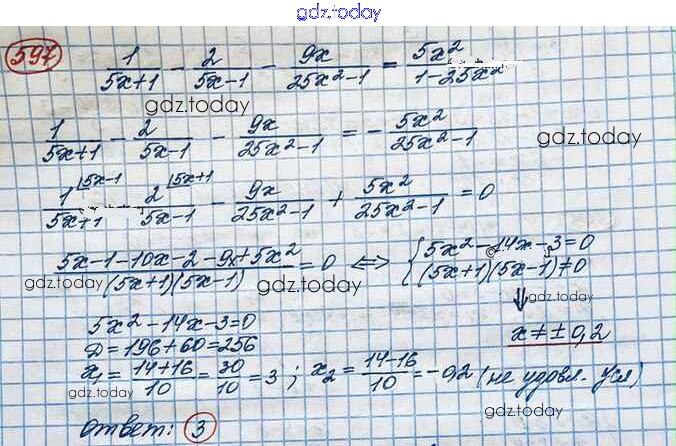 gdz.today
597 1/(5x+1) - 2/(5x-1) - 9x/(25x²-1) = 5x²/(1-25x²)
gdz.today
1/(5x+1) - 2/(5x-1) - 9x/(25x²-1) = - 5x²/(25x²-1)
gdz.today
1^(5x-1)/(5x+1) - 2^(5x+1)/(5x-1) - 9x/(25x²-1) + 5x²/(25x²-1) = 0
gdz.today
(5x-1-10x-2-9x+5x²)/((5x+1)(5x-1)) = 0 ⇔ { 5x²-14x-3=0
(5x+1)(5x-1)≠0
gdz.today gdz.today
⇓ gdz.today
5x²-14x-3=0
x≠±0,2
D=196+60=256
x₁ = (14+16)/10 = 30/10 = 3; x₂ = (14-16)/10 = -0,2 (не удовл. усл)
gdz.today gdz.today
Ответ: 3